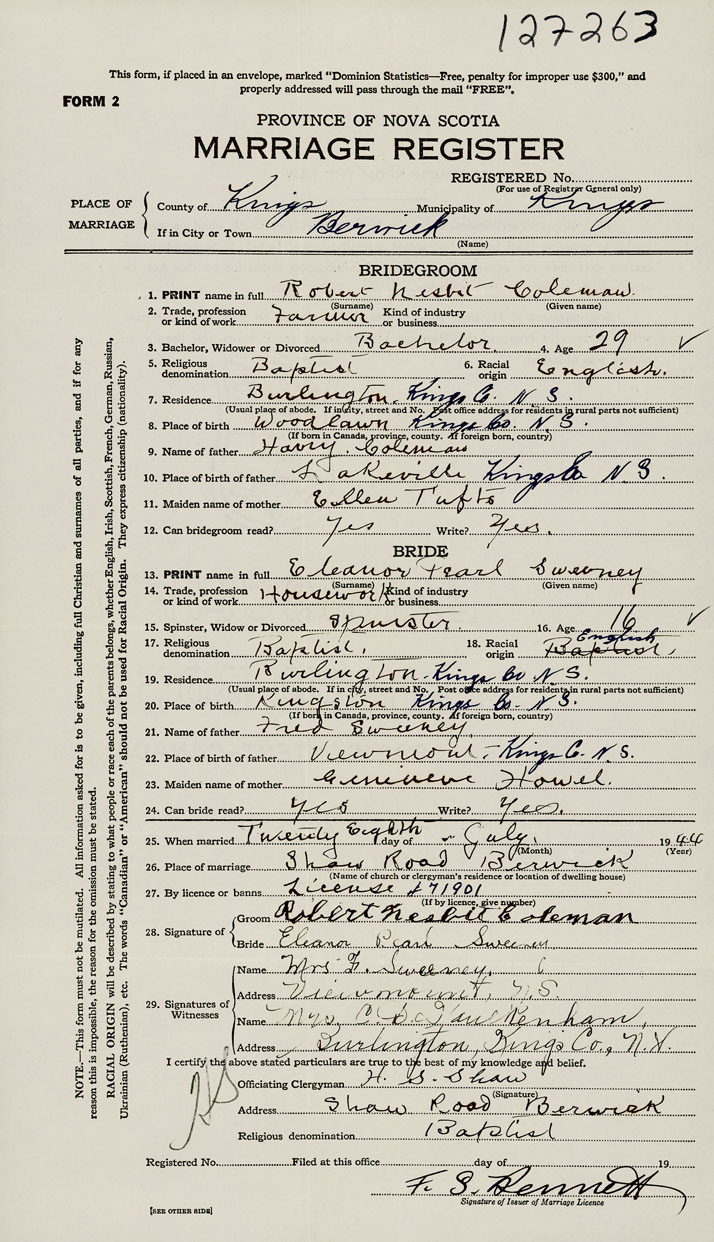 127263
This form, if placed in an envelope, marked "Dominion Statistics—Free, penalty for improper use $300," and
properly addressed will pass through the mail "FREE".
FORM 2
PROVINCE OF NOVA SCOTIA
MARRIAGE REGISTER
REGISTERED No.
(For use of Registrar General only)
PLACE OF MARRIAGE
County of Kings Municipality of Kings
If in City or Town Berwick
(Name)
BRIDEGROOM
1. PRINT name in full Robert Nesbit Coleman
(Surname) (Given name)
2. Trade, profession or kind of work Farmer Kind of industry or business
3. Bachelor, Widower or Divorced Bachelor. 4. Age 29 ✓
5. Religious denomination Baptist 6. Racial origin English.
7. Residence Burlington, Kings Co. N.S.
(Usual place of abode. If in city, street and No. Post office address for residents in rural parts not sufficient)
8. Place of birth Woodlawn Kings Co. N.S.
(If born in Canada, province, county. If foreign born, country)
9. Name of father Harry Coleman
10. Place of birth of father Lakeville Kings Co N.S.
11. Maiden name of mother Ellen Tufts
12. Can bridegroom read? Yes Write? Yes.
BRIDE
13. PRINT name in full Eleanor Pearl Sweeney
(Surname) (Given name)
14. Trade, profession or kind of work Housework Kind of industry or business
15. Spinster, Widow or Divorced Spinster. 16. Age 16 ✓
17. Religious denomination Baptist. 18. Racial origin Baptist English
19. Residence Burlington - Kings Co N.S.
(Usual place of abode. If in city, street and No. Post office address for residents in rural parts not sufficient)
20. Place of birth Kingston Kings Co. N.S.
(If born in Canada, province, county. If foreign born, country)
21. Name of father Fred Sweeney
22. Place of birth of father Viewmount, Kings Co. N.S.
23. Maiden name of mother Genevieve Howel.
24. Can bride read? Yes Write? Yes.
25. When married Twenty Eighth day of July. 1944
(Month) (Year)
26. Place of marriage Shaw Road Berwick
(Name of church or clergyman's residence or location of dwelling house)
27. By licence or banns License #71901
(If by licence, give number)
28. Signature of
Groom Robert Nesbit Coleman
Bride Eleanor Pearl Sweeney
29. Signatures of Witnesses
Name Mrs F. Sweeney.
Address Viewmount, N.S.
Name Mrs. C. B.
Address Burlington, Kings Co., N.S.
I certify the above stated particulars are true to the best of my knowledge and belief.
Officiating Clergyman H. S. Shaw
(Signature)
Address Shaw Road Berwick
Religious denomination Baptist
Registered No. Filed at this office day of 19
F. S. Bennett
Signature of Issuer of Marriage Licence
[SEE OTHER SIDE]
NOTE.—This form must not be mutilated. All information asked for is to be given, including full Christian and surnames of all parties, and if for any
reason this is impossible, the reason for the omission must be stated.
RACIAL ORIGIN will be described by stating to what people or race each of the parents belongs, whether English, Irish, Scottish, French, German, Russian,
Ukrainian (Ruthenian), etc. The words "Canadian" or "American" should not be used for Racial Origin. They express citizenship (nationality).